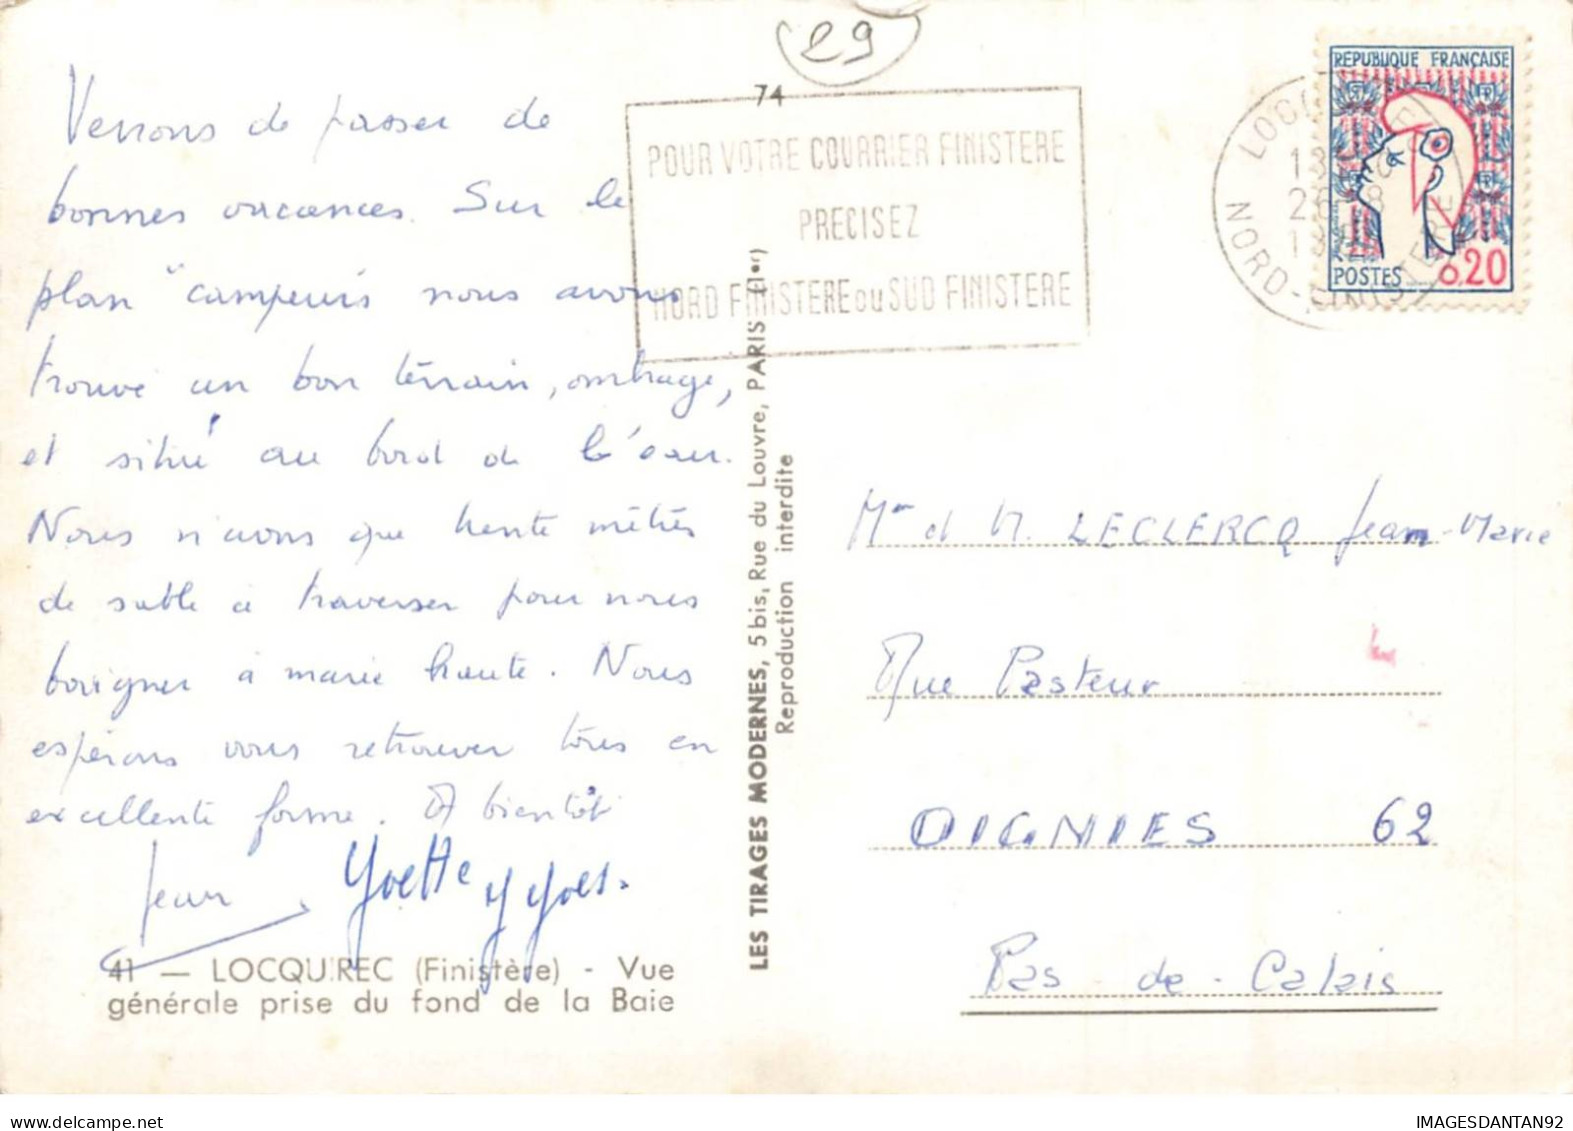 29
74
Venons de passer de
bonnes vacances. Sur le
plan "campeurs nous avons
trouvé un bon terrain, ombragé,
et situé au bord de l'eau.
Nous n'avons que trente mètres
de sable à traverser pour nous
baigner à marée haute. Nous
espérons vous retrouver tous en
excellente forme. A bientôt
Jean Yvette Yves.
41 — LOCQUIREC (Finistère) - Vue
générale prise du fond de la Baie
POUR VOTRE COURRIER FINISTERE
PRECISEZ
NORD FINISTERE ou SUD FINISTERE
LES TIRAGES MODERNES, 5 bis, Rue du Louvre, PARIS (1er)
Reproduction interdite
REPUBLIQUE FRANÇAISE
POSTES 0.20
NORD-FINISTERE
Mme et M. LECLERCQ Jean-Marie
Rue Pasteur
OIGNIES 62
Pas-de-Calais
IMAGESDANTAN92